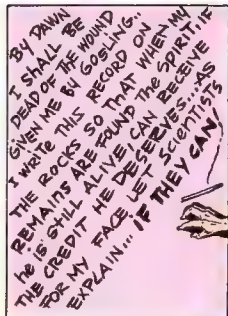 BY DAWN
I SHALL BE
DEAD OF THE WOUND
GIVEN ME BY GOSLING..
I WRITE THIS RECORD ON
THE ROCKS SO THAT WHEN MY
REMAINS ARE FOUND THE SPIRIT, IF
he IS STILL ALIVE, CAN RECEIVE
THE CREDIT HE DESERVES.. AS
FOR MY FACE, LET SCIENTISTS
EXPLAIN... IF THEY CAN!